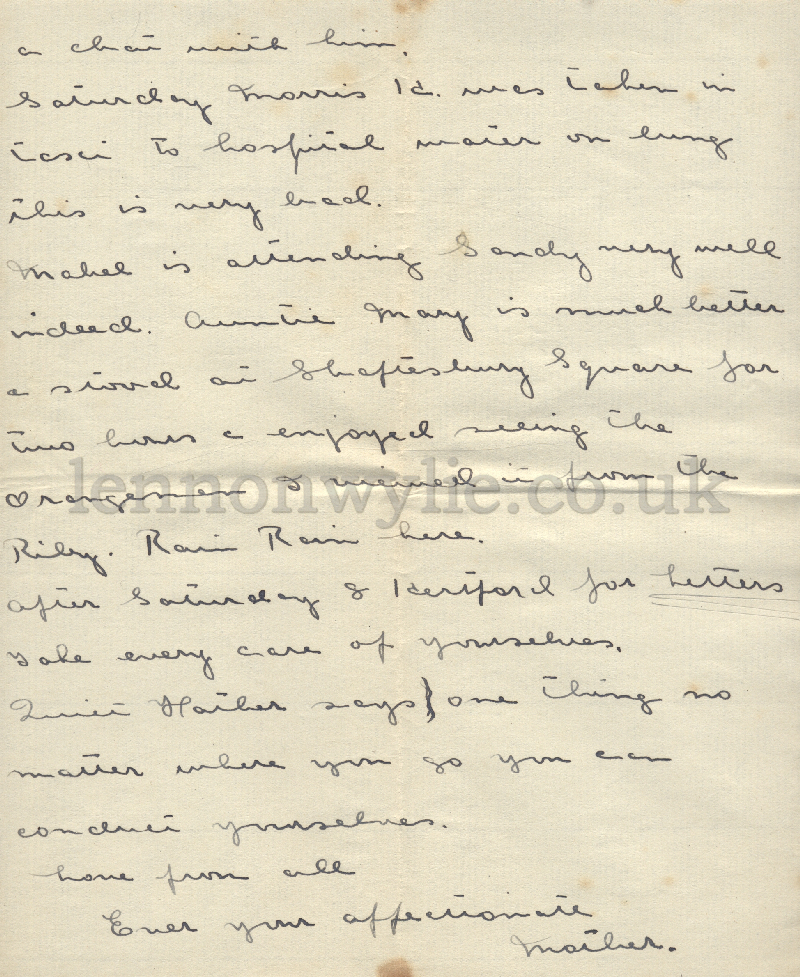 a chat with him.
Saturday Morris K. was taken in
taxi to hospital water on lung
this is very bad.
Mabel is attending Sandy very well
indeed. Auntie Mary is much better
a stood at Shaftesbury Square for
two hours a enjoyed seeing the
Orangemen I viewed it from the
Riley. Rain Rain here.
after Saturday 8 Hertford for Letters
Take every care of yourselves.
Quiet Father says) one thing no
matter where you go you can
conduct yourselves.
love from all
Ever your affectionate
Mother.
lennonwylie.co.uk